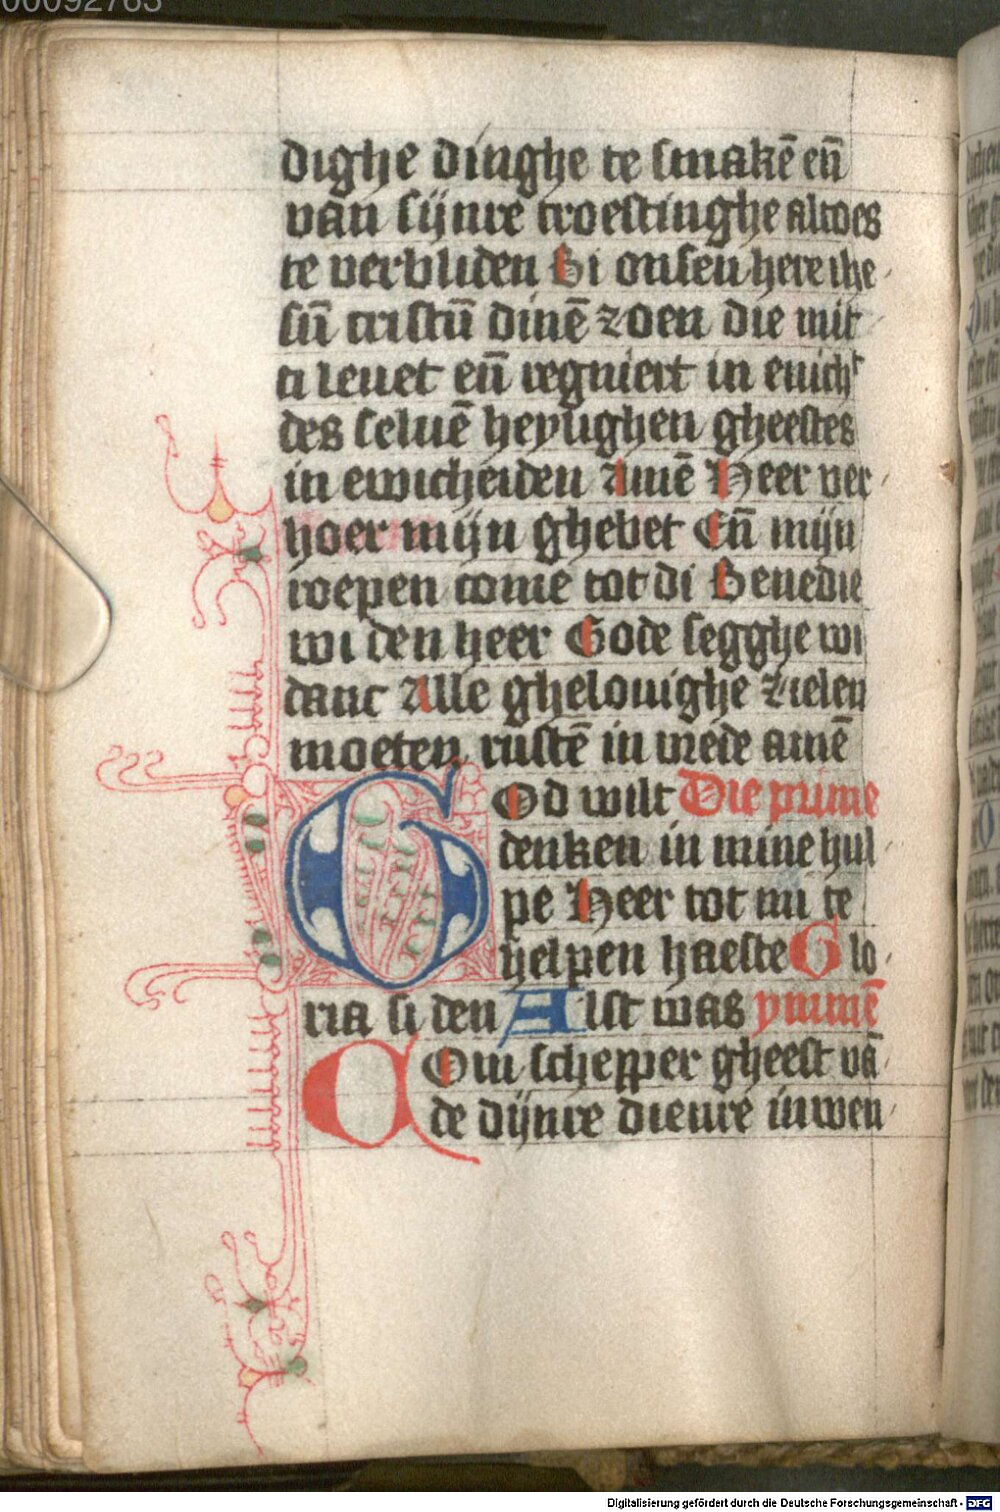 00092763
dighe dinghe te smakē en̄
van sijnre troestinghe altoes
te verbliden Bi onsen here ihe
sū cristū dinē zoen die mit
ti leuet en̄ regniert in enich
des seluē heylighen gheestes
in ewicheiden Amē Heer ver
hoer mijn ghebet En̄ mijn
roepen come tot di Benedie
wi den heer Gode segghe wi
danc Alle ghelouighe zielen
moeten rustē in vrede amē
God wilt Die prime
denken in mine hul
pe Heer tot mi te
helpen haeste Glo
ria si den Alst was ymmē
Com schepper gheest vā
de dijnre dienre inwen
Digitalisierung gefördert durch die Deutsche Forschungsgemeinschaft - DFG